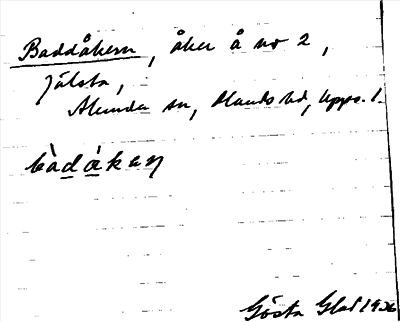 Baddåkern, åker å no 2,
Jälsta,
Alunda sn, Olands hd, Upps. l.
bàdåkaṇ
Gösta Glad 1936